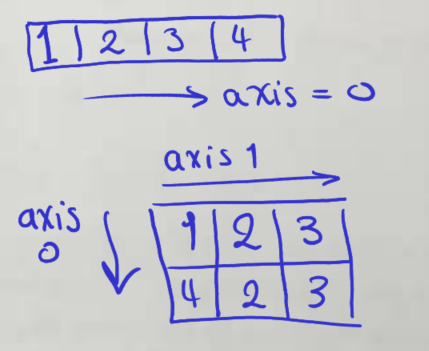 1 2 3 4
axis = 0
axis 1
axis
0
1 2 3
4 2 3